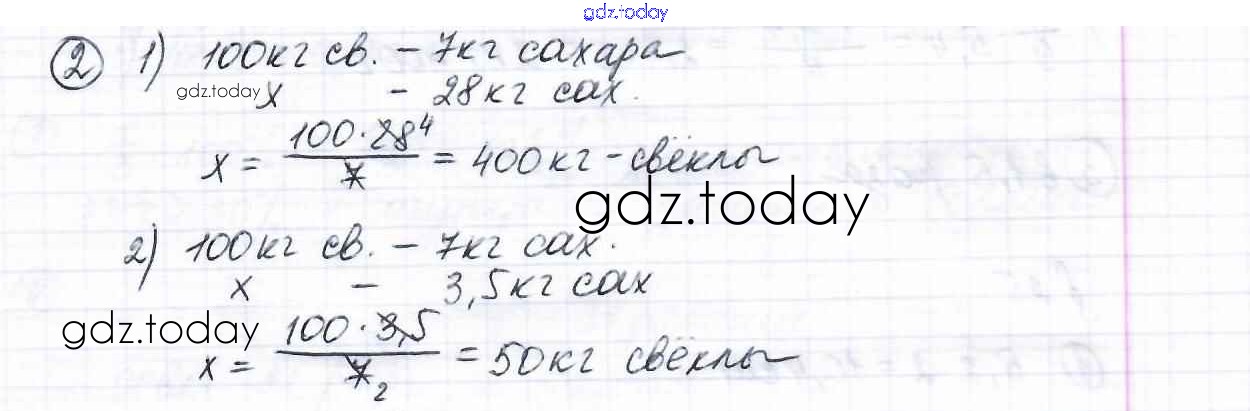 gdz.today
② 1) 100кг св. - 7кг сахара
gdz.today x - 28кг сах.
x = 100·28⁴ / 7 = 400кг - свёклы
gdz.today
2) 100кг св. - 7кг сах.
x - 3,5кг сах
gdz.today
x = 100·3,5 / 7₂ = 50кг свёклы